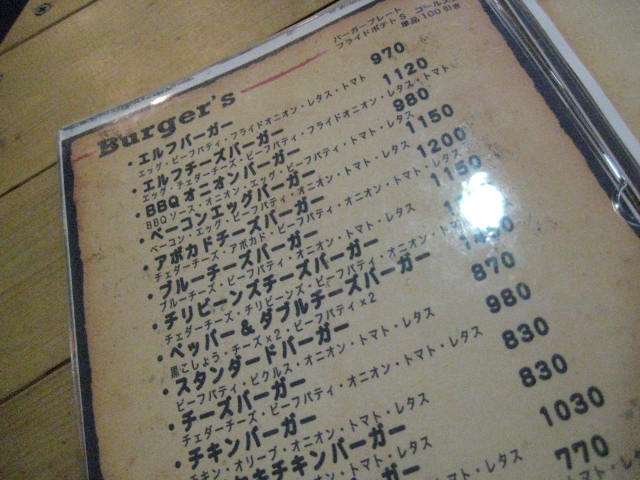 バーガープレート
フライドポテトS
単品100引き
Burger's
・エルフバーガー 970
エッグ・ビーフパティ・フライドオニオン・レタス・トマト
・エルフチーズバーガー 1120
エッグ・チェダーチーズ・ビーフパティ・フライドオニオン・レタス・トマト
・BBQオニオンバーガー 980
BBQソース・オニオン・エッグ・ビーフパティ・トマト・レタス
・ベーコンエッグバーガー 1150
ベーコン・エッグ・ビーフパティ・オニオン・トマト・レタス
・アボカドチーズバーガー 1200
チェダーチーズ・アボカド・ビーフパティ・オニオン・トマト・レタス
・ブルーチーズバーガー 1150
ブルーチーズ・ビーフパティ・オニオン・トマト・レタス
・チリビーンズチーズバーガー
チェダーチーズ・チリビーンズ・ビーフパティ・オニオン・トマト
・ペッパー＆ダブルチーズバーガー
黒こしょう・チーズ×2・ビーフパティ×2
・スタンダードバーガー 870
ビーフパティ・ピクルス・オニオン・トマト・レタス
・チーズバーガー 980
チェダーチーズ・ビーフパティ・オニオン・トマト・レタス
・チキンバーガー 830
チキン・オリーブ・オニオン・トマト・レタス
キチキンバーガー 830
オニオン・トマト・レタス
1030
トマト・レタス
770